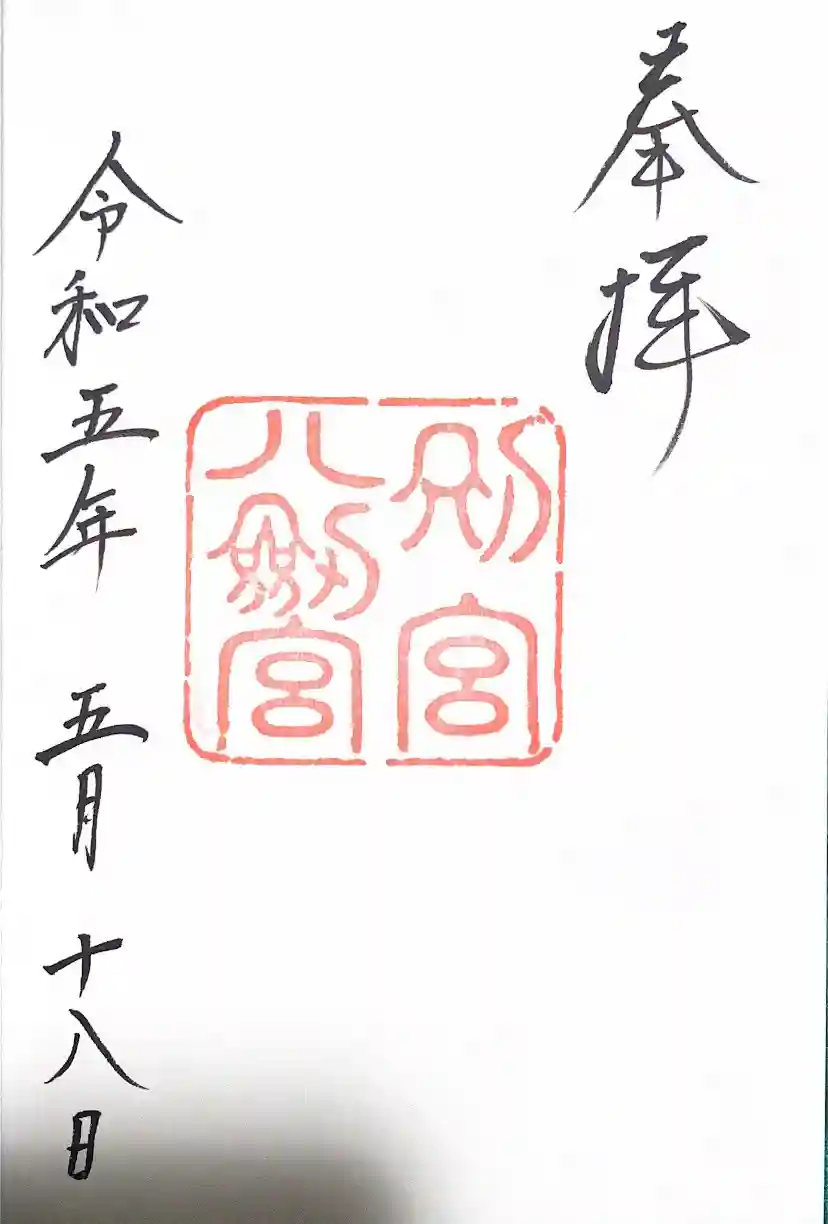 奉拝
別宮
八劔宮
令和五年 五月 十八日